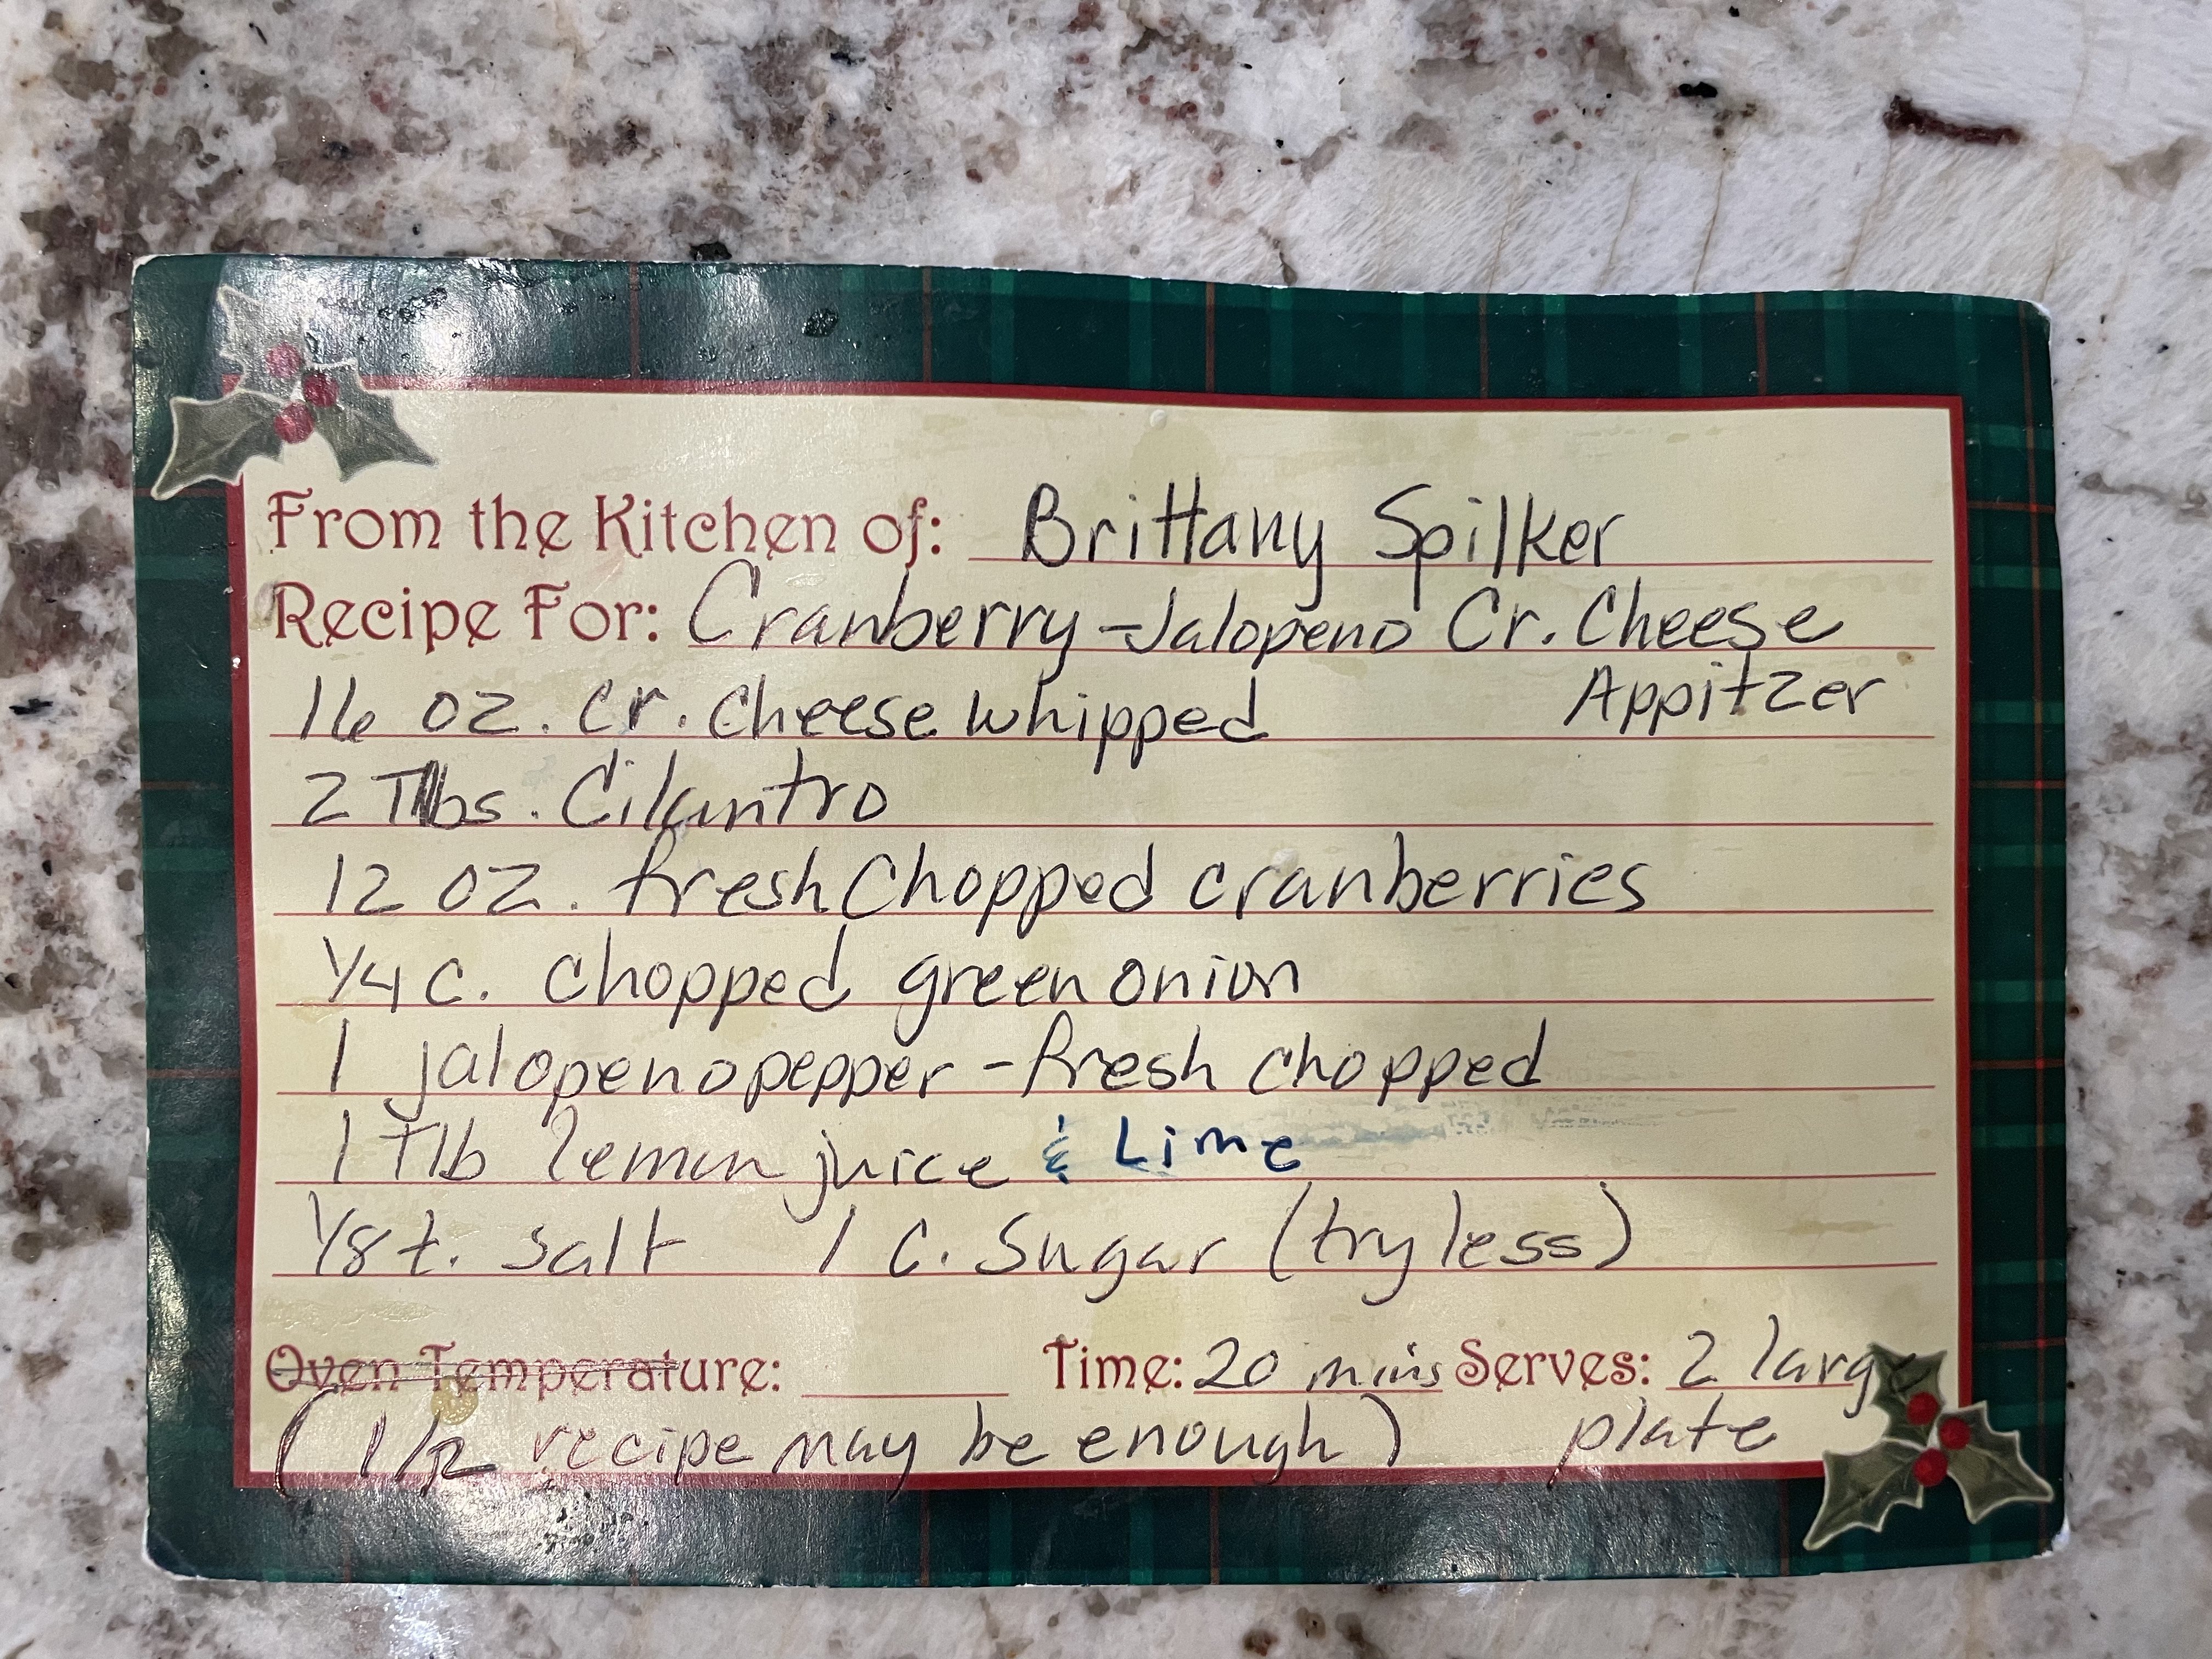 From the Kitchen of: Brittany Spilker
Recipe For: Cranberry-Jalopeno Cr. Cheese
Appitzer
16 oz. cr. cheese whipped
2 Tlbs. Cilantro
12 oz. fresh Chopped cranberries
1/4 c. chopped green onion
1 jalopeno pepper - fresh chopped
1 Tlb lemon juice & Lime
1/8 t. salt 1 c. Sugar (try less)
Oven Temperature: Time: 20 mins Serves: 2 large
plate
( 1/2 recipe may be enough )